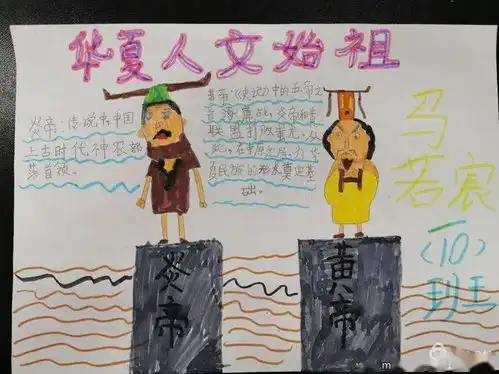 华夏人文始祖
炎帝:传说中中国
上古时代神农部
落首领。
黄帝:《史记》中的五帝之
首。涿鹿之战,炎帝和黄帝
联盟打败蚩尤,从
此,在中原定居,为华
夏民族的形成奠定基
础。
马
若宸
(10)
班
炎帝
黄帝